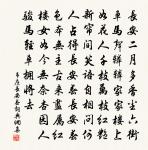 長安二月多香塵六街
車馬聲轔轔家家樓上
如花人千枝萬枝紅豔
新簾間笑語自相問何
人占得長安春長安春
色本無主古來盡屬紅
樓女如今無奈杏園人
駿馬輕車擁將去
韋莊長安春詞